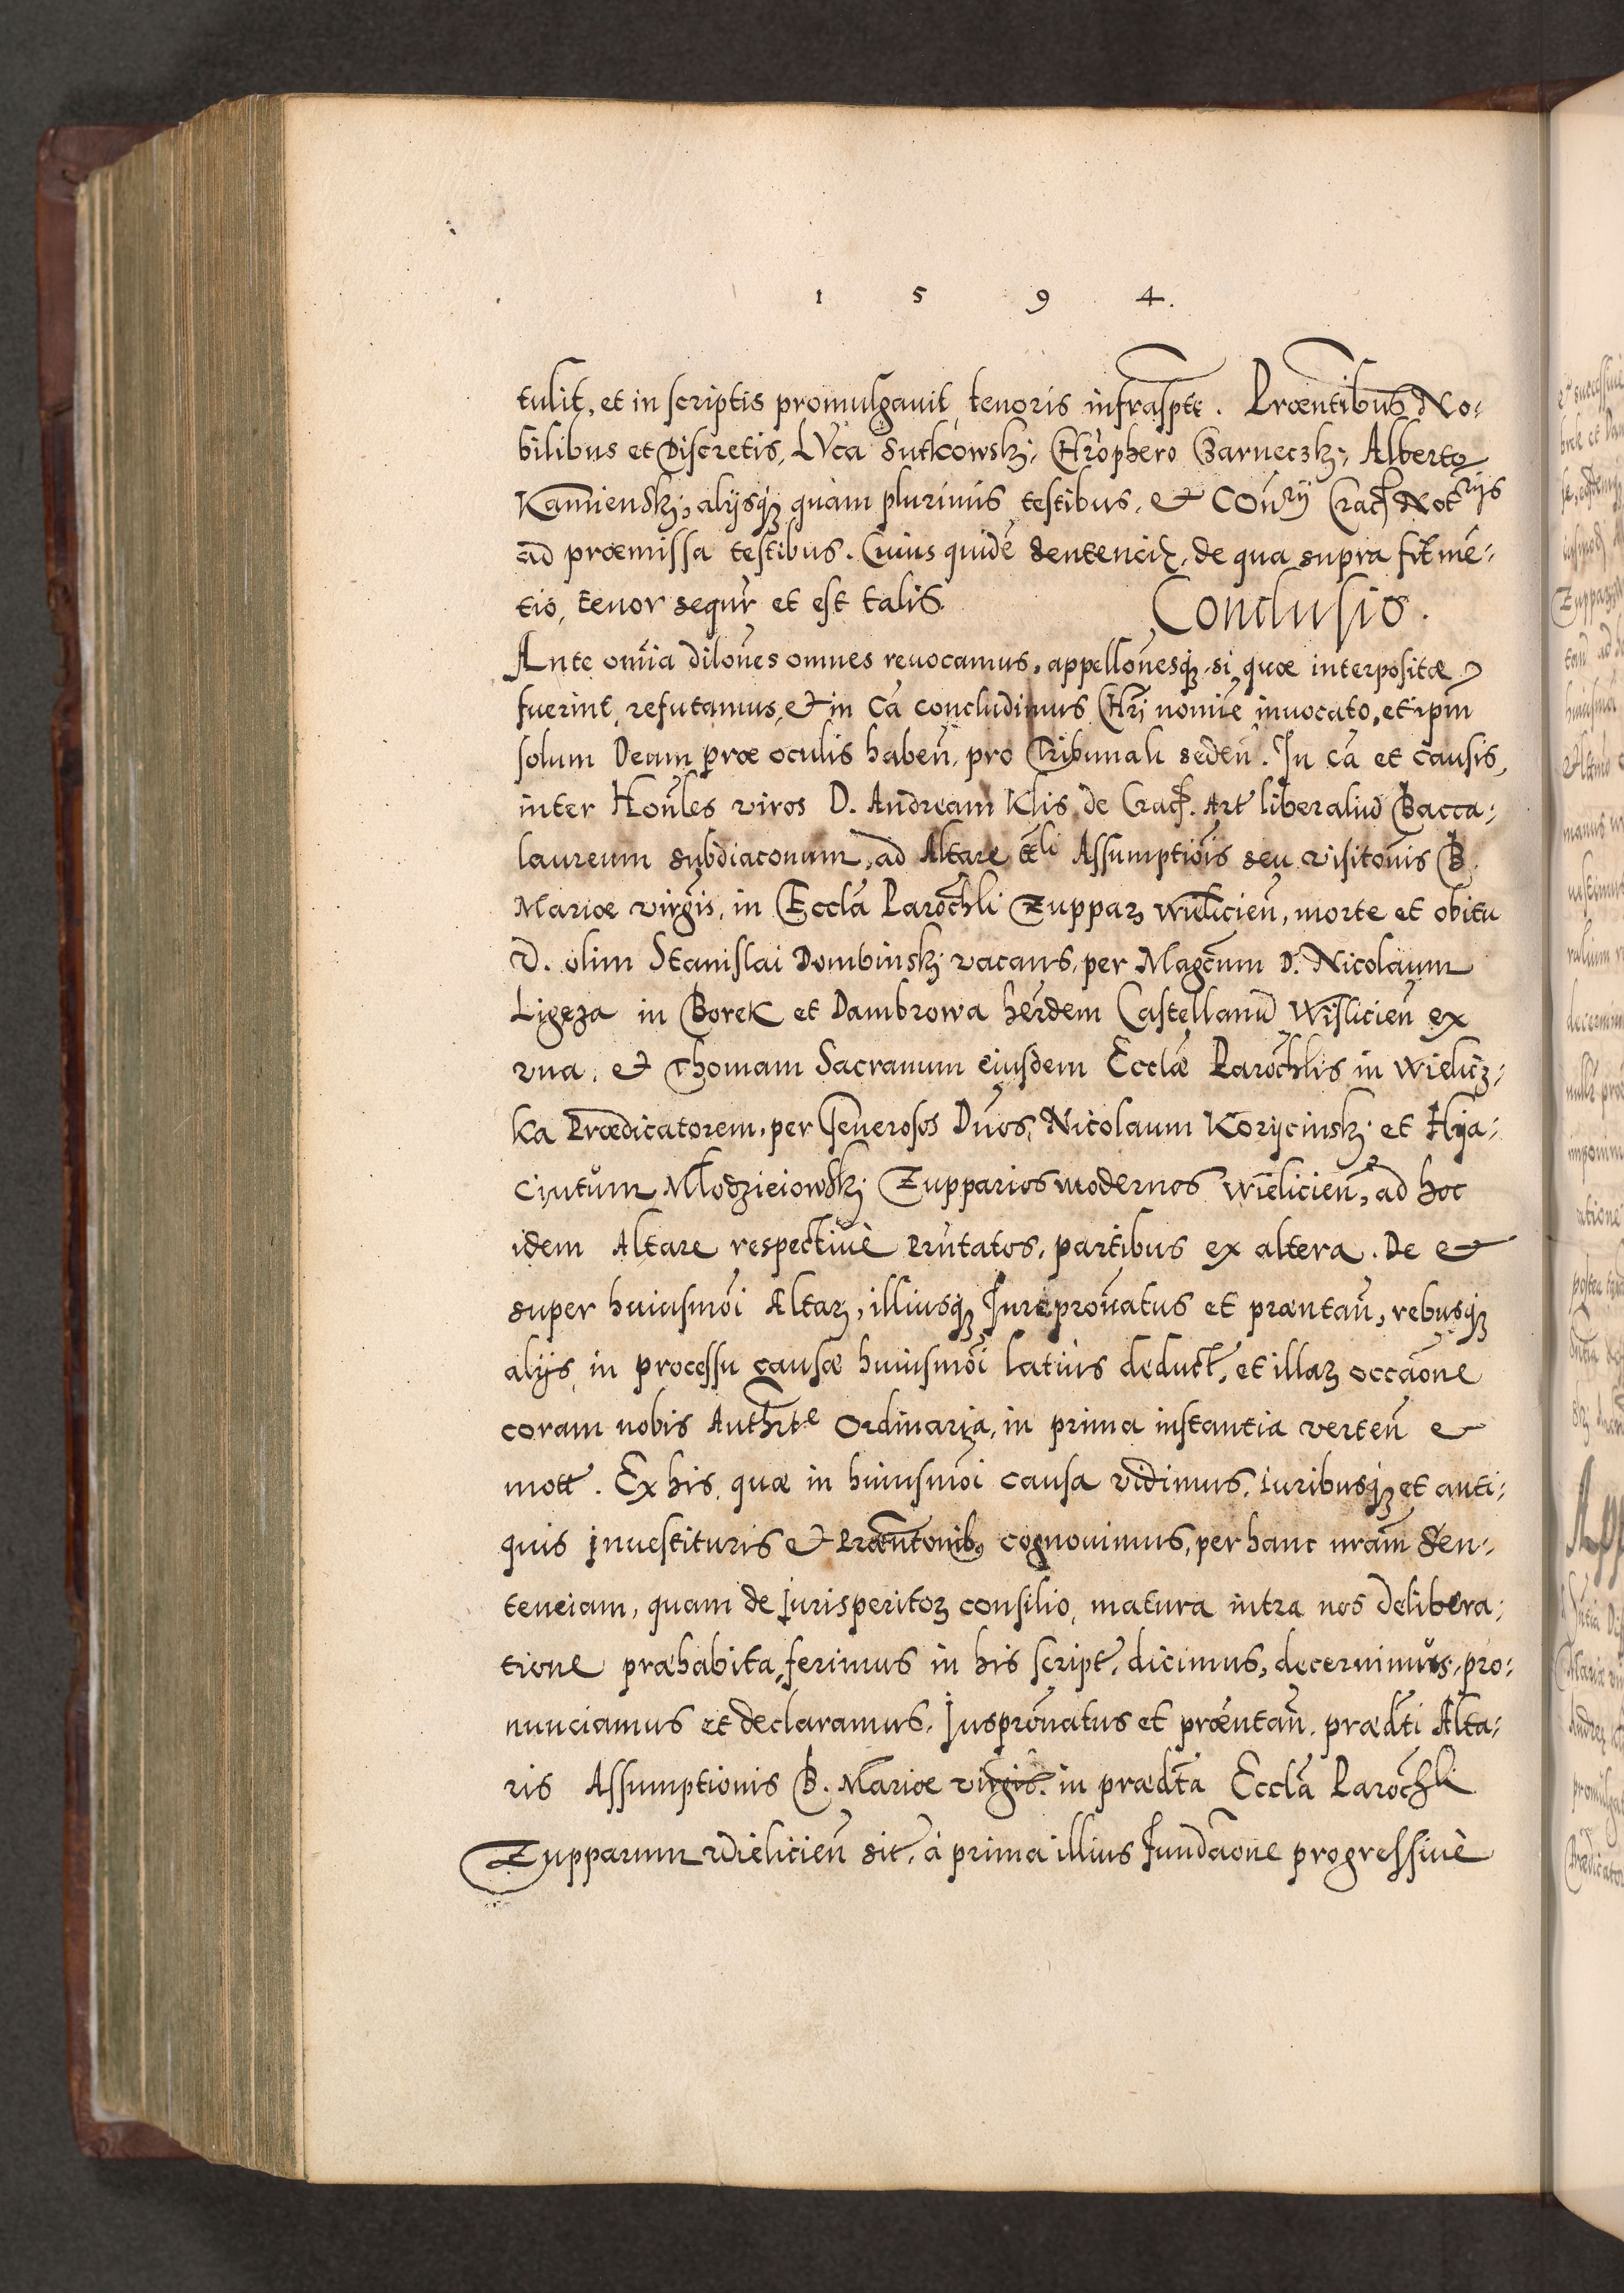 1 5 9 4.
tulit, et in scriptis promulgauit, tenoris infrasptę. Præntibus No-
bilibus et Discretis, LVca Sutkowskį, Chrophero Czarneczkį, Alberto
Kamienskį, alijsq̃ quàm plurimis testibus, et Coñrij Crac Notrijs
ad præmissa testibus. Cuius quidē Sentenciæ, de qua supra fit mē-
tio, tenor sequr̃ et est talis. Conclusio.
Ante om̃ia diloñes omnes reuocamus, appelloñesq̃, si quæ interpositæ
fuerint, refutamus, et in cã concludimus Chr̃i nomĩe inuocato, et ipm̃
solum Deum præ oculis habeñ, pro Tribunali sedeñ. In cã et causis,
inter Hoñles viros D. Andream Klis de Crac. Art liberaliũ Bacca-
laureum subdiaconum, ad Altare tt̃li Assumptiõis seu visitoñis B.
Mariæ virg̃is, in Eccl̃a Paroch̃li Zuppaꝝ wieliciens̃, morte et obitu
D. olim Stanislai Dombinskį vacans, per Magc̃um D. Nicolaum
Ligęza in Borek et Dambrowa hẽrdem Castellanũ Wisliciens̃ ex
vna, et Thomam Sacranum eiusdem Eccl̃æ Paroch̃lis in Wielicz-
ka Prædicatorem, per Generosos Dños, Nicolaum Korijcinskį et Hija-
cijntům Młodzieiowskį Zupparios modernos wieliciens̃, ad hoc
idem Altare respectiuè Prñtatos, partibus ex altera. De et
super huiusmõi Altaꝝ, illiusq̃ Iureproñatus et præntañ, rebusq̃
alijs in processu causæ huiusmõi latiùs deduct, et illaꝝ occãone
coram nobis Auth̃rte Ordinaria, in prima instantia verteñ et
mott. Ex his, quæ in huiusmõi causa vidimus, iuribusq̃ et anti-
quis inuestituris et Præñtonibꝰ cognouimus, per hanc nr̃am Sen-
tenciam, quam de Iurisperitoꝝ consilio, matura intra nos delibera-
tione præhabita, ferimus in his script, dicimus, decernimůs, pro-
nunciamus et declaramus. Iusproñatus et præntañ. prædt̃i Alta-
ris Assumptionis B. Mariæ virg̃is. in prædt̃a Eccl̃a Paroch̃li
Zupparum Wieliciens̃ sit, à prima illius fundãone progressiuè